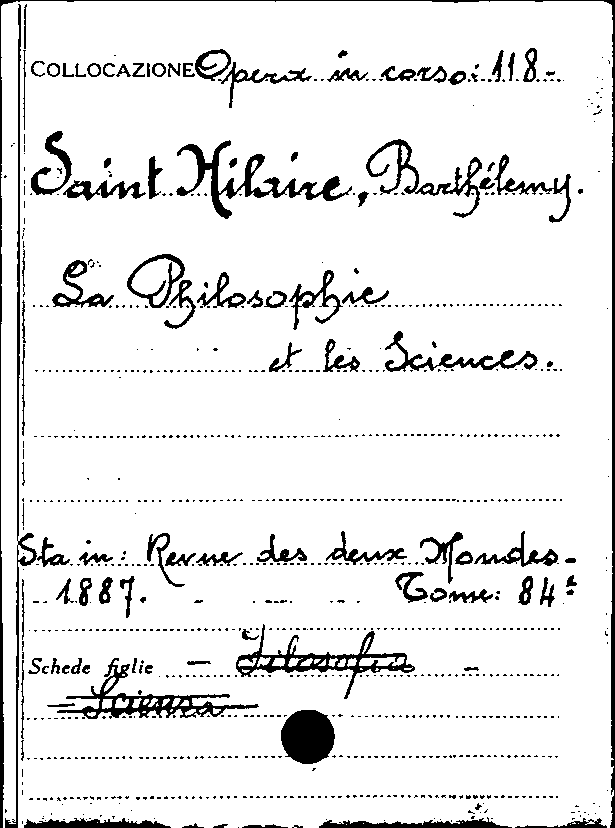 COLLOCAZIONE Opera in corso: 118-
Saint Hilaire, Barthélemy.
La Philosophie
et les Sciences.
Sta in: Revue des deux Mondes-
1887. - Tome: 84ᵉ
Schede figlie - Filosofia -
Scienza